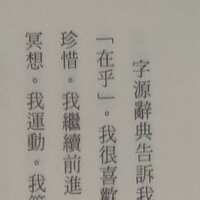 字源辭典告訴我
「在乎」。我很喜歡
珍惜。我繼續前進
冥想。我運動。我